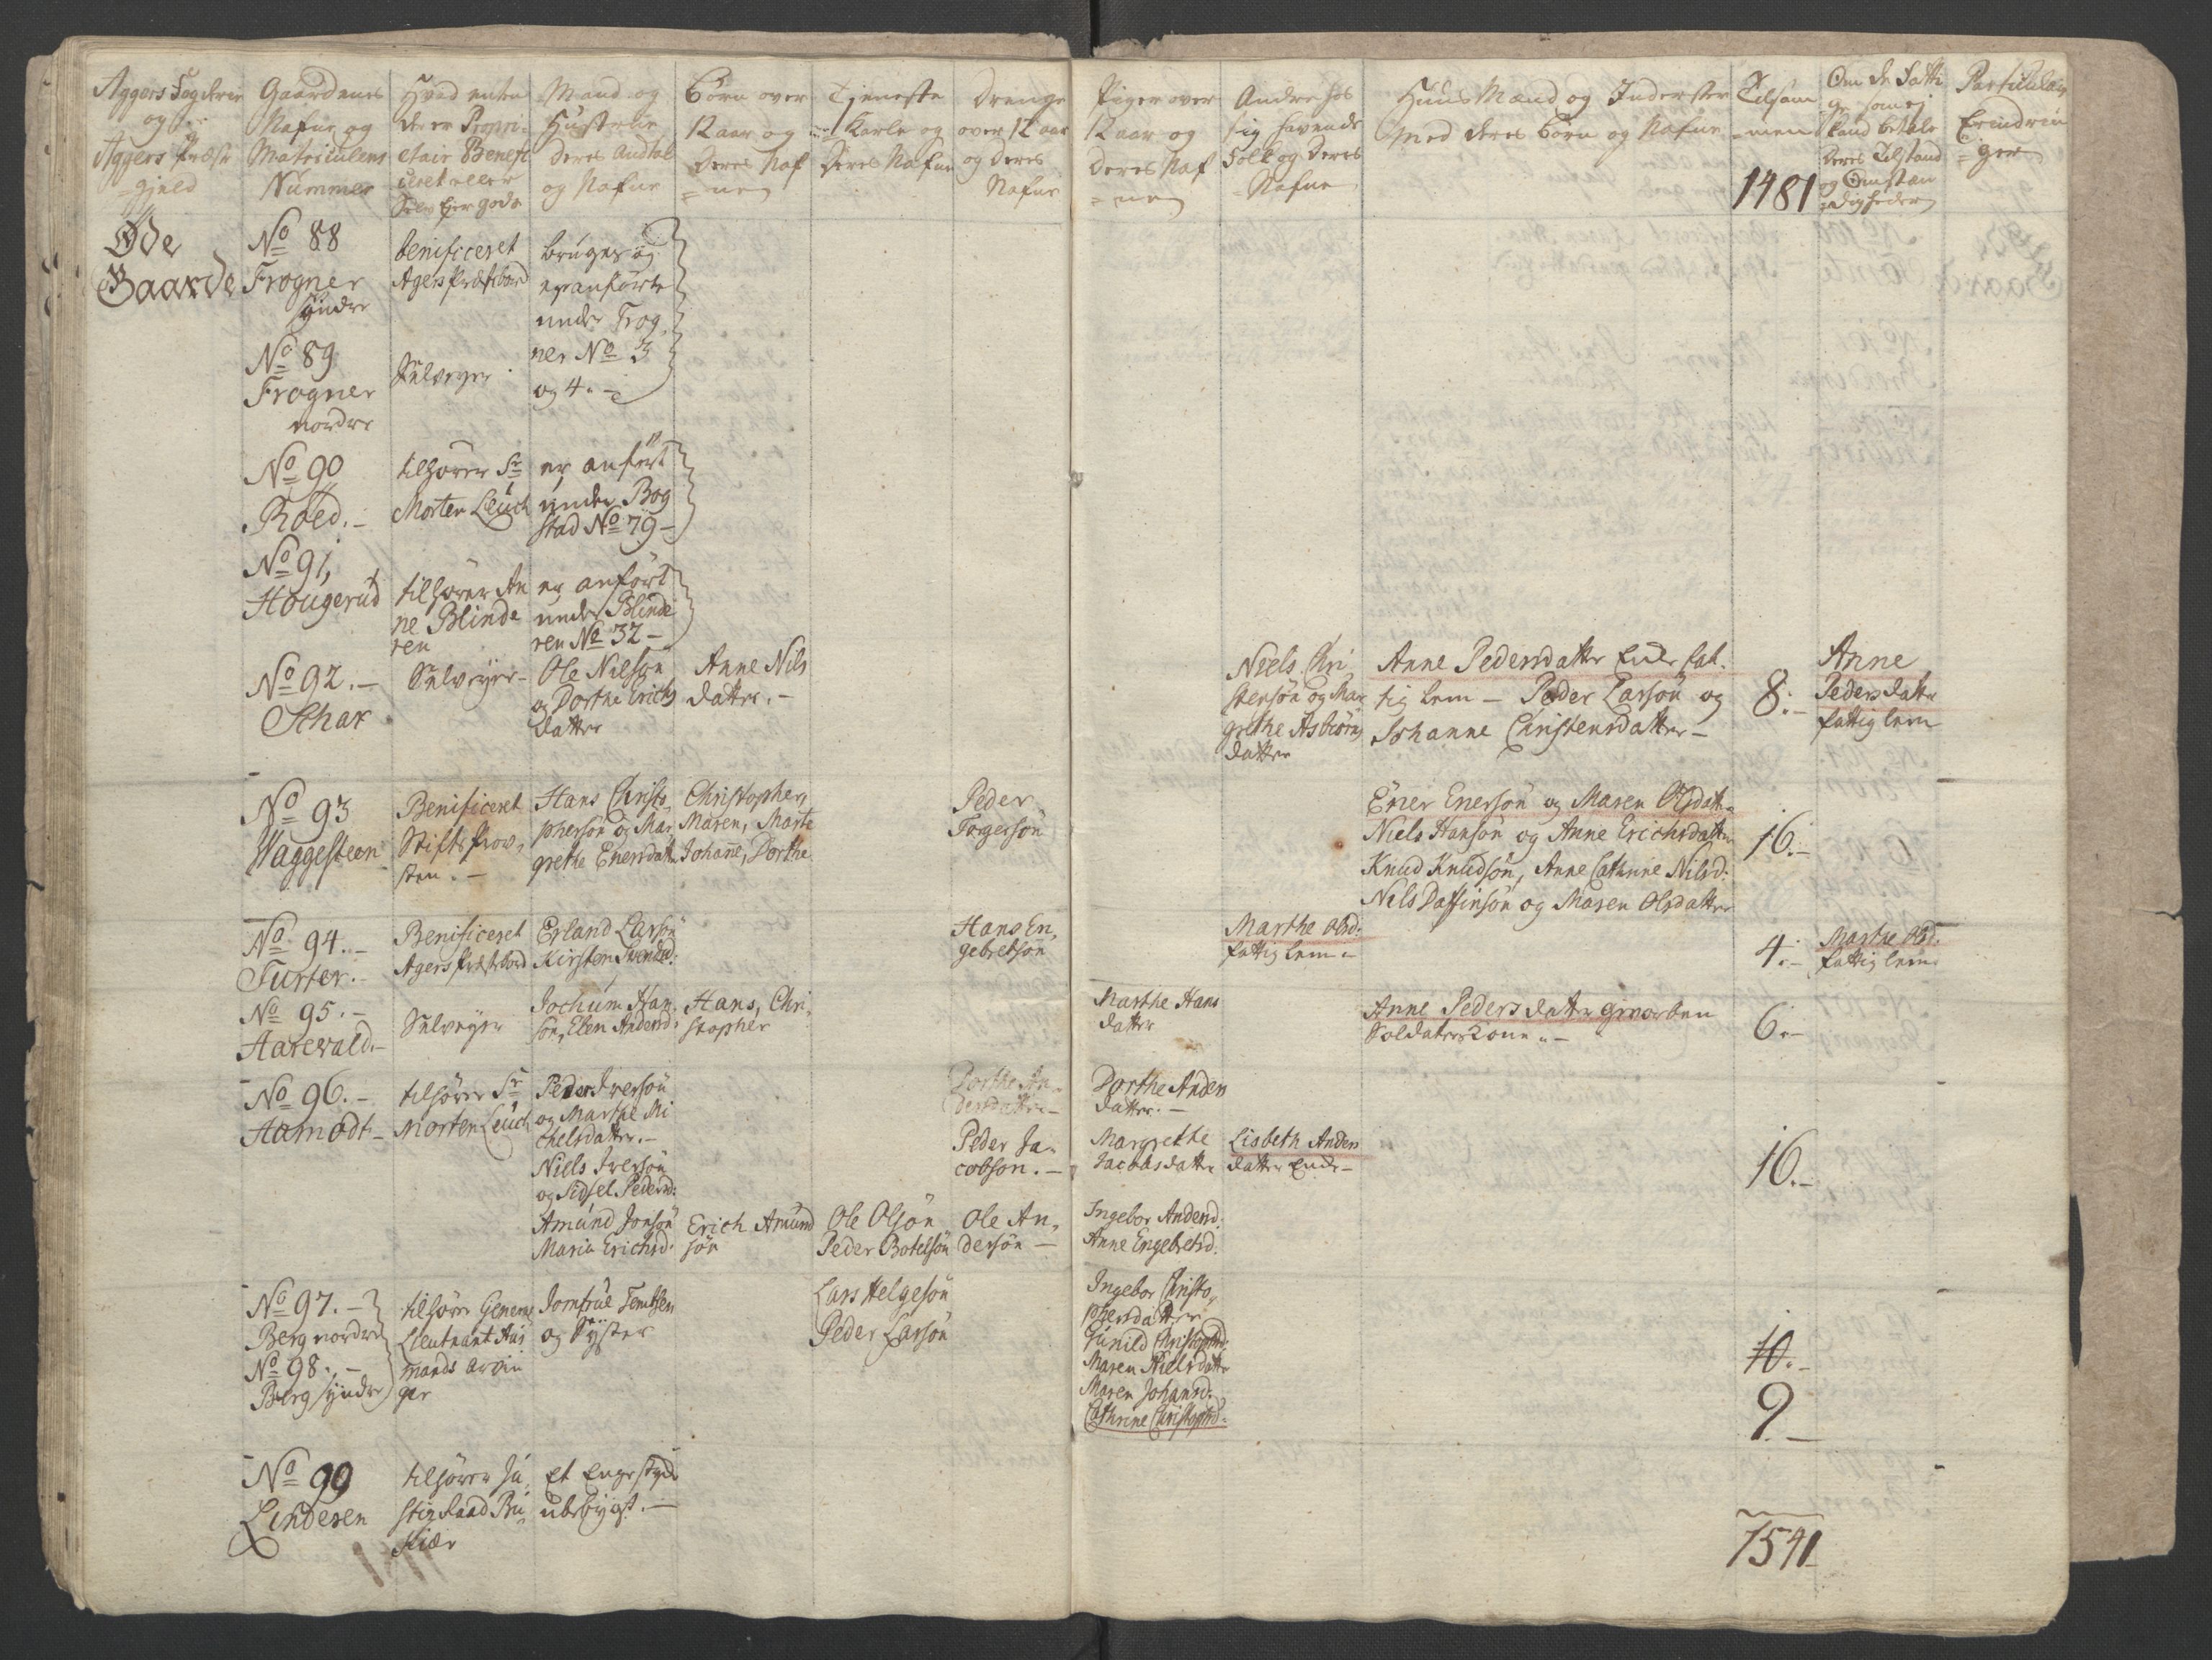 Aggers Fogderie
og
Aggers Præste
gield
Gaardenes
Nafne og
Matriculens
Nummer
Hvad enten
der er Propri-
etair Benefi
ceret eller
Selv Eyer gods
Mand og
Hustrue
deres Andtal
og Nafne
Børn over
12 aar og
deres Naf
=ne
Tjeneste
Karle og
deres Nafne
Drenge
over 12 aar
og deres
Nafne
Piger over
12 aar og
deres Naf
=ne
Andre hos
sig havende
Folk og deres
Nafne
Huus Mænd og Inderster
med deres Børn og Nafne
Tilsam
=men
1481
Om de Fatti
ge som ej
kand betale
deres Tilstand
og Omstæn
digheder
Particulair
Erindrin
=ger
Øde
Gaarde
No 88
Frogner
syndre
benificeret
Agers Præstebord
bruges og
er anførte
under Frog
ner No 3
og 4.-
No 89
Frogner
nordre
Selveyer
No 90
Röed.-
tilhører Sr
Morten Leuch
er anført
under Bog
stad No 79-
No 91,
Hougerud
tilhører An
ne Blinde
ren
er anført
under Blinde
ren No 32-
No 92.-
Schar
Selveyer-
Ole Nielson
og Dorthe Erichs
datter
Anne Nils
datter.-
Niels Chri
stensön og Mar
grethe Asbiörns
datter
Anne Pedersdatter Enke fat
tig lem - Peder Larsön og
Johanne Christensdatter-
8.-
Anne
Pedersdatter
fattig lem
No 93
Waggesteen
Benificeret
Stifts Prov,
sten.-
Hans Christo,
phersön og Mar
grethe Enersdatter
Christopher,
Maren, Marte
Johane, Dorthe
Peder
Torgersön
Ener Enersön og Maren Olsdatter
Niels Hansön og Anne Erichsdatter
Knud Knudsön, Anne Cathrine Nilsd:
Nels Daffinsön og Maren Olsdatter
16.-
No 94.-
Turter.-
Benificeret
Agers Præstebord
Erland Larsön
Kirsten Svendsd:
Hans En,
gebretsön
Marthe Olsd:
fattig lem-
4.-
Marthe Olsd:
fattig lem
No 95.-
Aarevald.-
Selveyer
Jochum Han
son, Elen Andersd:
Hans, Chri
stopher
Marthe Hans
datter
Anne Pedersdatter gevorben
Soldaterkone.-
6.-
No 96.-
Aamodt-
tilhører Sr
Morten Leuch
Peder Iversön
og Marthe Mi
chelsdatter.-
Niels Iversön
og Sidsel Pedersd:
Amund Jonsön
Maria Erichsd.
Erich Amund
sön
Ole Olsön
Peder Botelsön
Dorthe An-
dersdatter-
Peder Ja-
cobson.-
Ole An,
dersön-
Dorthe Anders
datter.-
Margrethe
Jacobsdatter
Ingebor Andersd.
Anne Engebretsd.
Lisbeth Anders
datter Enke-
16.-
No 97.-
Berg nordre
No 98.-
Berg syndre
tilhører General
Lieutnant Hus
mands arvin
ger
Jomfrue
og Syster
Lars Helgesön
Peder Larsön
Ingebor Christo,
phersdatter
Gunild Christophd:
Maren Nielsdatter
Maren Johansd:
Cathrine Christophd:
10.-
9.-
No 99
Lindesen
tilhører Ju
stiz Raad Bu
skiær
Et Enge stycke
ubebygt.-
1541